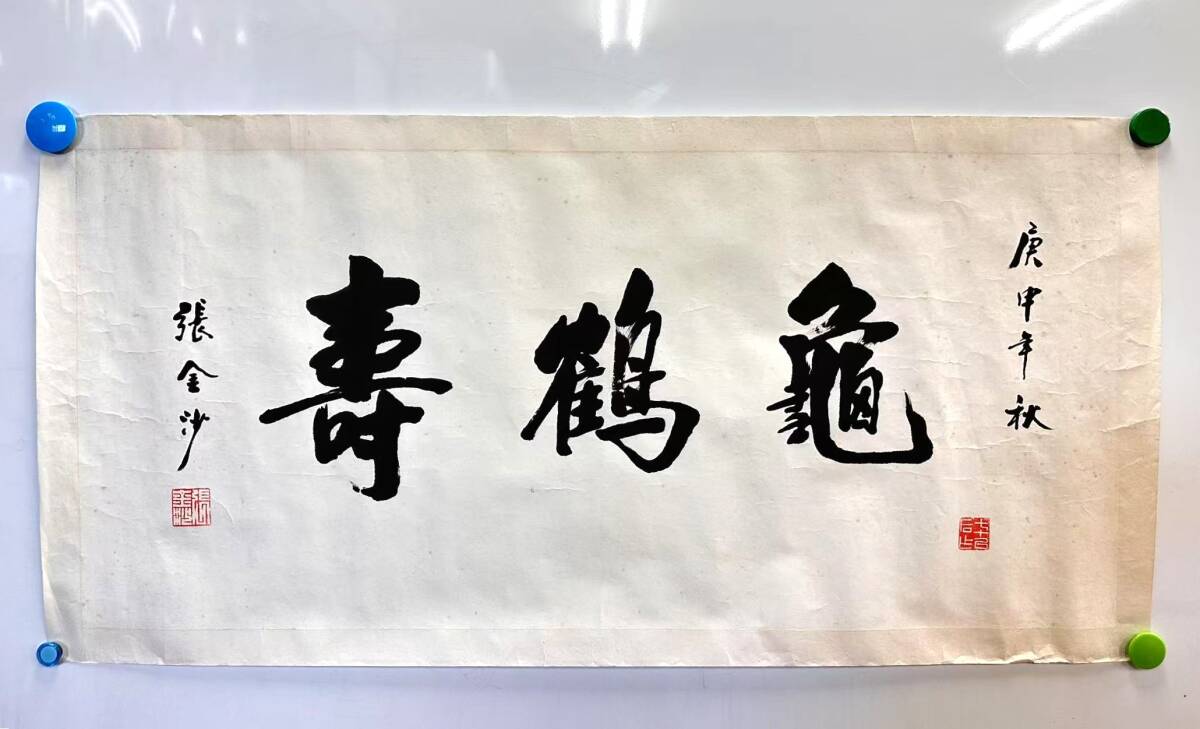 庚申年秋
龜鶴壽
張金沙